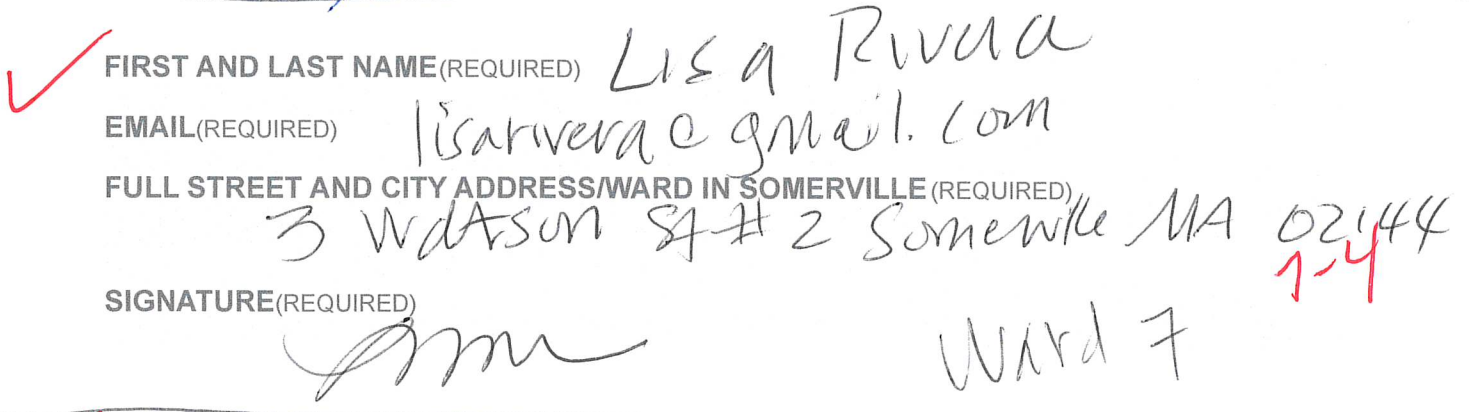 ✓ FIRST AND LAST NAME(REQUIRED) Lisa Rivera
EMAIL(REQUIRED) lisarivera@gmail.com
FULL STREET AND CITY ADDRESS/WARD IN SOMERVILLE(REQUIRED)
3 Watson St #2 Somerville MA 02144
7-4
SIGNATURE(REQUIRED)
Ward 7